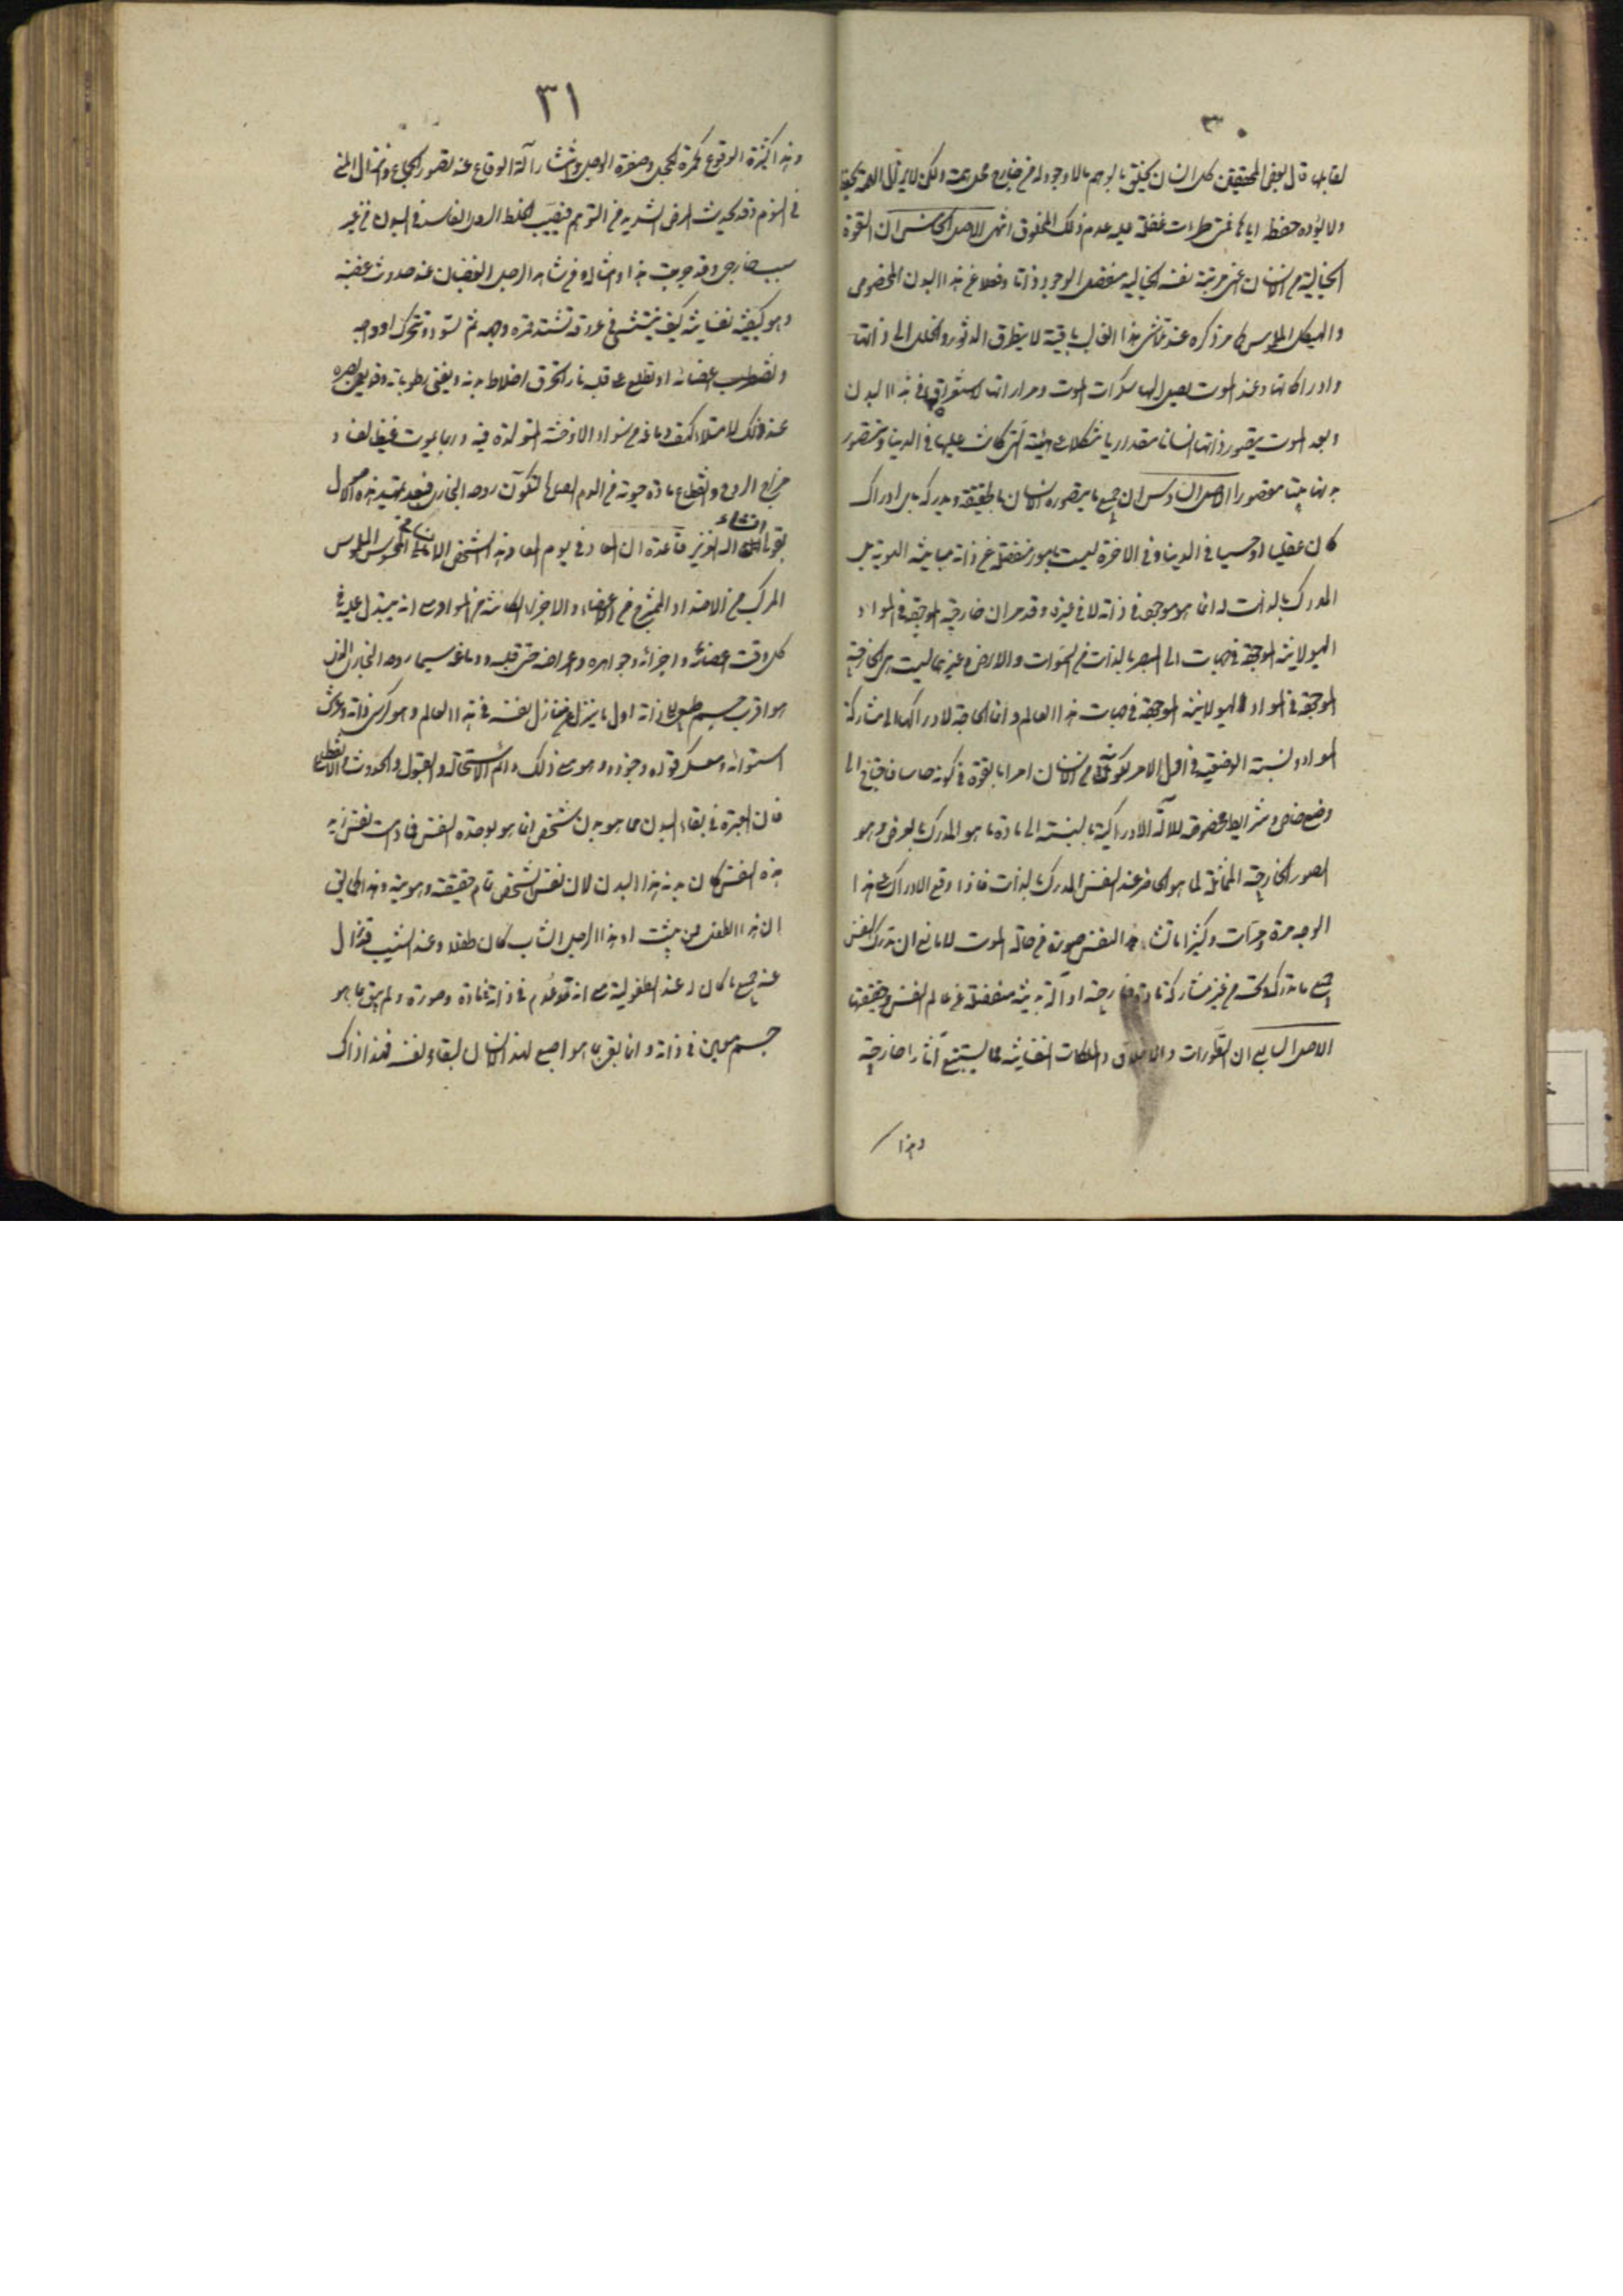 ٣٠
لقابلها قال بعض المحققين كل انسان يخلق بالوهم ما لا وجود له في خارج محل همته ولكن لا يزال الهمة يحفظه
ولا يؤده حفظ اياها فمتى طرات غفلة عليه عدم ذلك المخلوق انتهى الاصل الخامس ان القوة
الخيالية من الانسان اعنى مرتبة نفسه الخيالية منفصل الوجود ذاتا وفعلا عن هذا البدن المخصوص
والهيكل الملموس كما مر ذكره عند تلاشى هذا القالب باقية لا يتطرق الدثور والخلل الى ذاتها
وادراكاتها وعند الموت يصل اليها سكرات الموت ومراراتها لاستغراقها في هذا البدن
وبعد الموت يتصور ذاتها انسانا مقدرا يا مشكلا على هيئة التى كانت عليها في الدنيا ويتصور
بدنها ميتا مقبورا الاصل السادس ان جميع ما يتصوره الانسان بالحقيقة ويدركه باى ادراك
كان عقليا او حسيا في الدنيا وفى الاخرة ليست بامور منفصلة عن ذاته مباينة لهويته بل
المدرك بالذات له انما هو موجود في ذاته لا في غيره وقد مر ان خارجية الموجودة في المواد
الهيولانية الموجودة في جهات الى المبصر بالذات من السموات والارض وغيرهما ليست هى الخارجية
الموجودة في المواد الهيولانية الموجودة في جهات هذا العالم وانما الحاجة لادراكها الى مشاركة
المواد ونسبته الوضعية في اول الامر لكون الانسان امرا بالقوة في كونه حاسا فاحتاج الى
وضع خاص وشرايط مخصوصة للآلة الادراكية بالنسبة الى مادة ما هو المدرك بالعرض وهو
الصور الخارجية المماثلة لما هو الحاضر عند النفس المدرك بالذات فاذا وقع الادراك على هذا
الوجه مرة او مرات وكثيرا ما تشاهد النفس صورة في حالة الموت لا مانع ان تدرك النفس
جميع ما تدركه وتحسه من غير مشاركة مادة خارجة او آلة بدنية منفصلة عن عالم النفس وحقيقتها
الاصل السابع ان التصورات والاخلاق والملكات النفسانية مما يستتبع آثارا خارجية
وهذا
٣١
وهذا كثيرة الوقوع كحمرة الخجل وصفرة الوجل وانتشار آلة الوقاع عند تصور الجماع وانزال المنى
فى النوم وقد يحدث المرض الشديد من التوهم فيغيب الخلط الردى الفاسد في البدن من غير
سبب خارجى وقد جربت هذا وامثاله في مشاهد الرجل الغضبان عند حدوث غضبه
وهو كيفية نفسانية كيف ينتشر في عروقه تشتد حمرة وجهه ثم تسود وتتحرك اوداجه
وتضطرب اعضائه او تطلع على قلبه نار تحرق اخلاط بدنه ويفنى رطوباته وقد يعمى بصره
عند ذلك لامتلاء كهف دماغه من سواد الادخنة المتولدة فيه وربما يموت غيظا لفساد
مزاج الروح وانقطاع مادة حيوته من الدم الصالح لتكون روحه البخارى فبعد تمهيد هذه الاصول
بقول انشاء الله العزيز قاعدة ان المعاد في يوم المعاد هذا الشخص الانسانى المحسوس الملموس
المركب من الاضداد الممتزج من الاعضاء والاجزاء الكائنة من المواد مع انه يتبدل عليه في
كل وقت اعضائه واجزائه وجواهره واعراضه حتى قلبه ودماغه سيما روحه البخارى الذى
هو اقرب جسم طبيعى لذاته اول ما ينزل من منازل نفسه في هذا العالم وهو كرسى ذاته وعرش
استوائه ومعسكر قواه وجنوده وهو مع ذلك دائم الاستحالة والتبدل والحدوث والانقطاع
فان العبرة في بقاء البدن بما هو بدن شخص انما هو بوحدة النفس فما دامت نفس زيد
هذه النفس كان بدنه هذا البدن لان نفس الشخص تمام حقيقته وهويته وهذا كما يقال
ان هذا الطفل ممن يشيب او هذا الرجل الشاب كان طفلا وعند الشيب قد زال
عنه جميع ما كان له عند الطفولية مع انه قد عدم في ذاته مادة وصورة ولم يبق بما هو
جسم معين في ذاته وانما بقى بما هو اصبع لهذا الانسان لبقاء نفسه فهذا ذاك